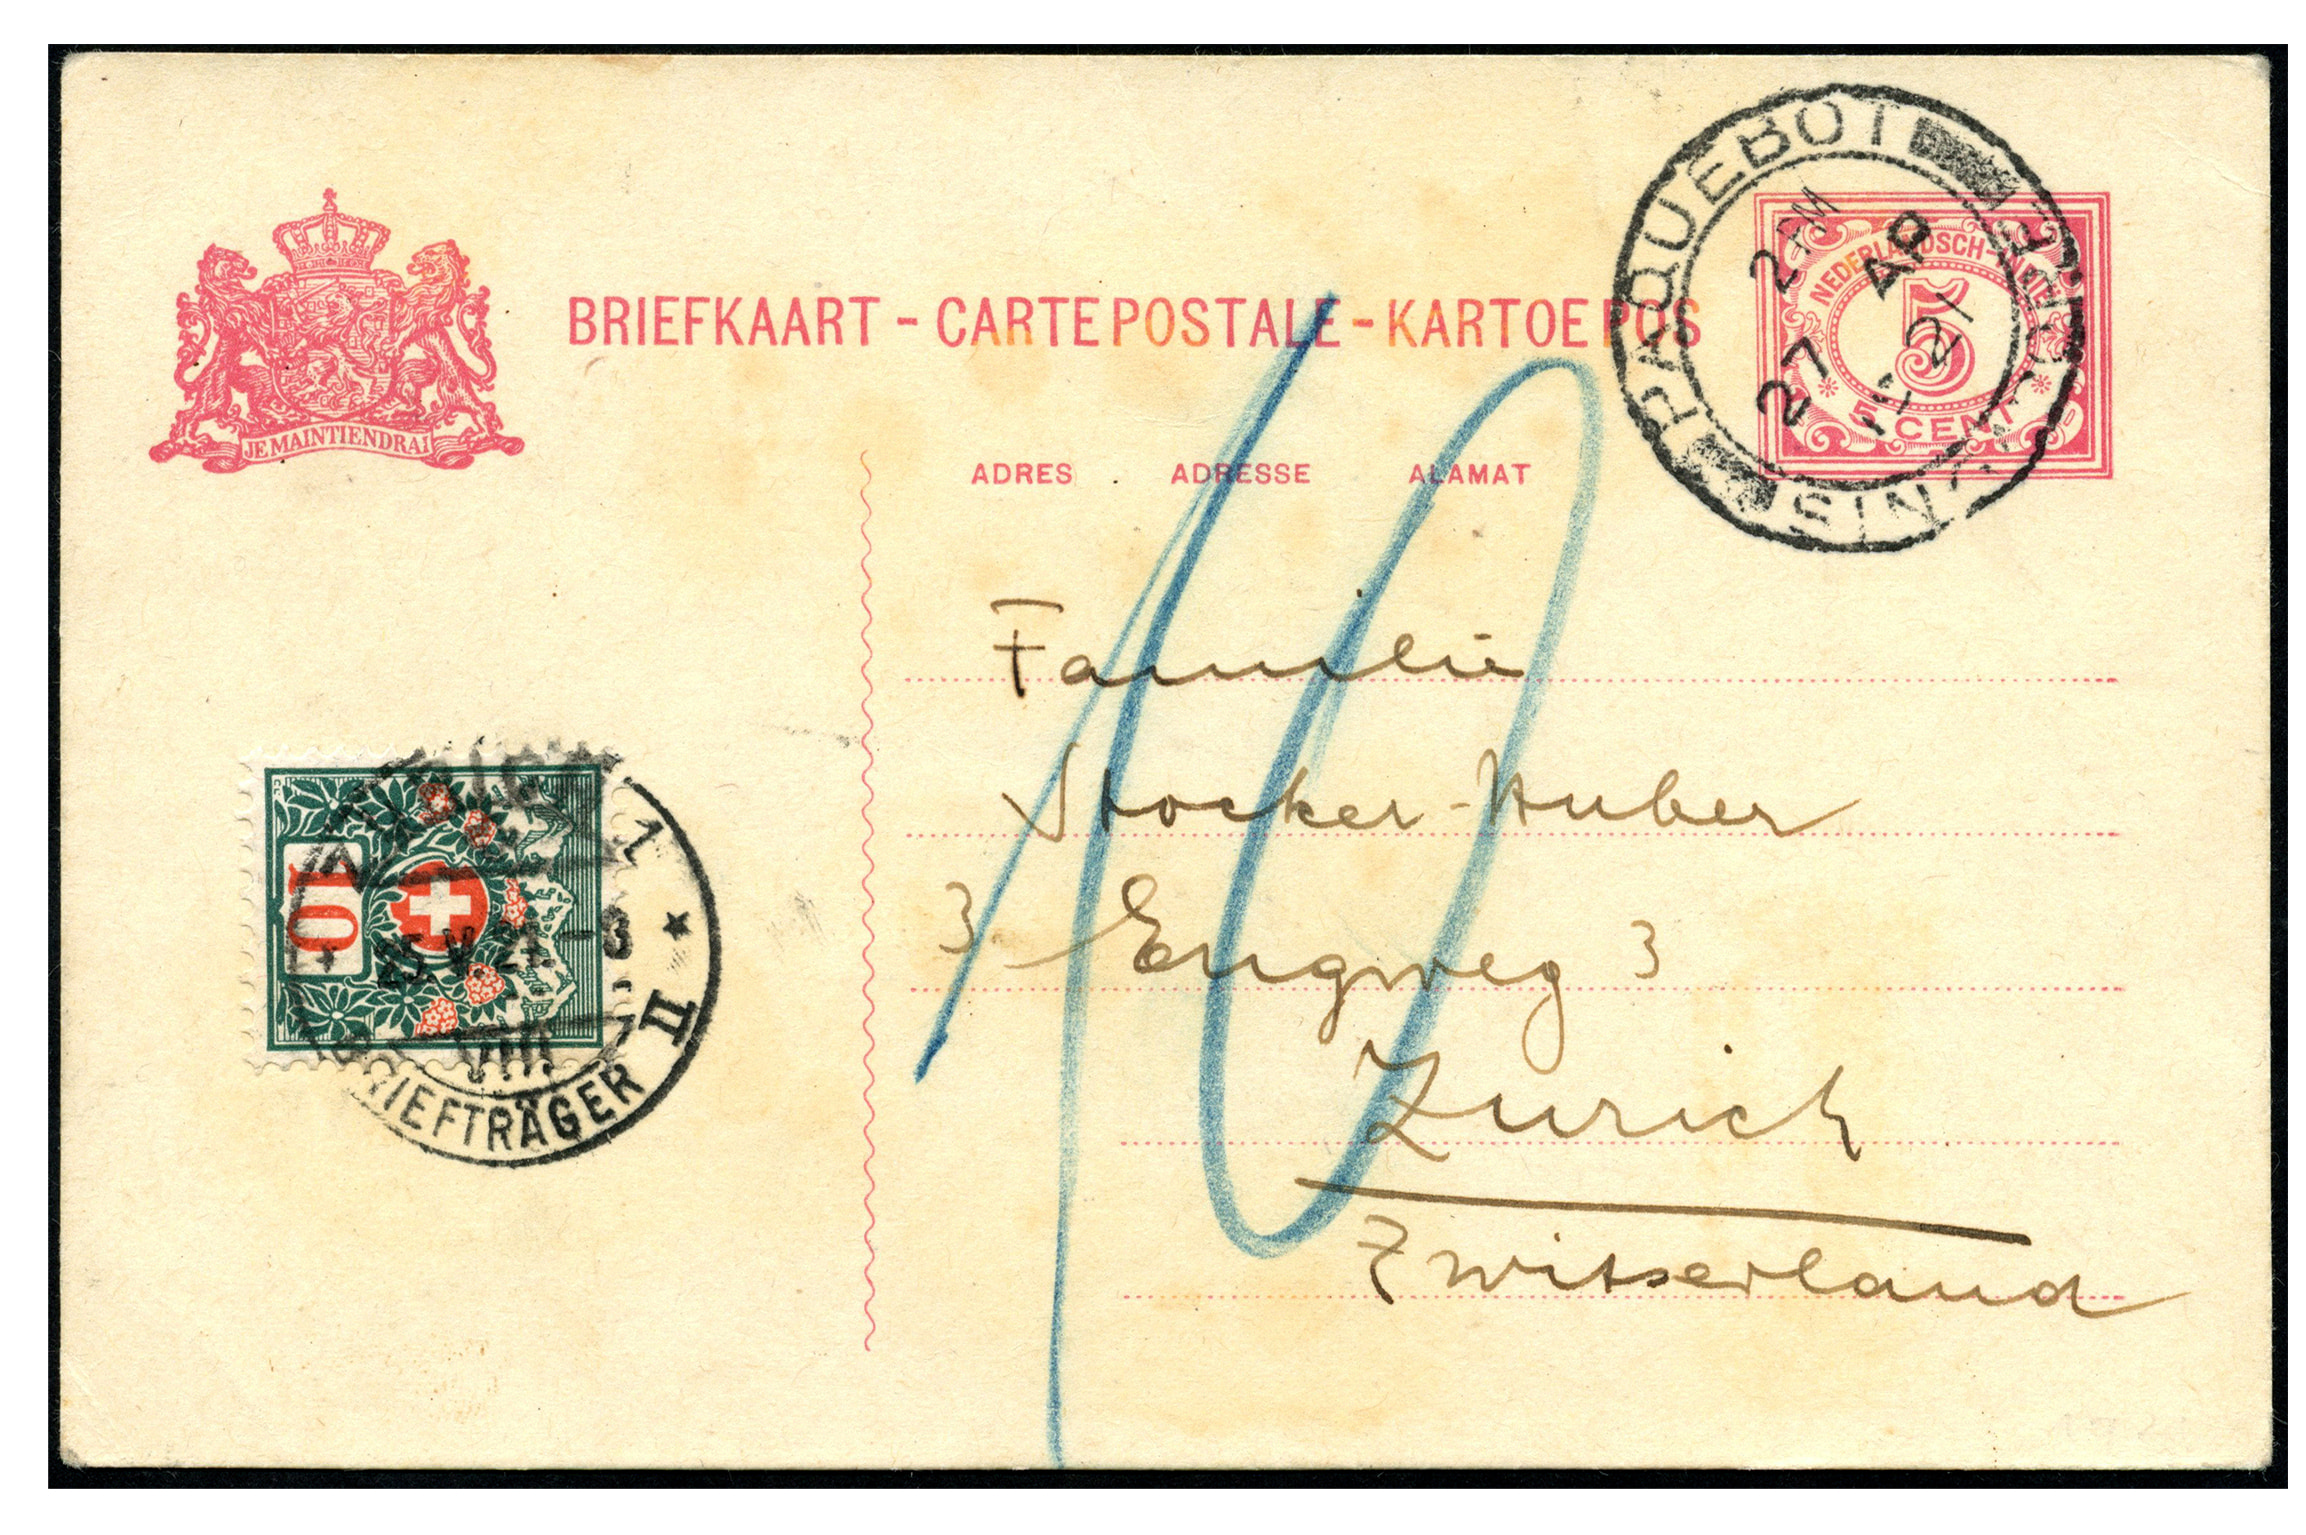 BRIEFKAART - CARTE POSTALE - KARTOE POS
JE MAINTIENDRAI
PAQUEBOT
2 PM
27 AP
21
NEDERLANDSCH-INDIË
5
5 CENT
ADRES ADRESSE ALAMAT
10
Familie
Stocker-Huber
3 Engweg 3
Zurich
Zwitserland
10
1
25.V.21.-8
VIII
BRIEFTRÄGER II